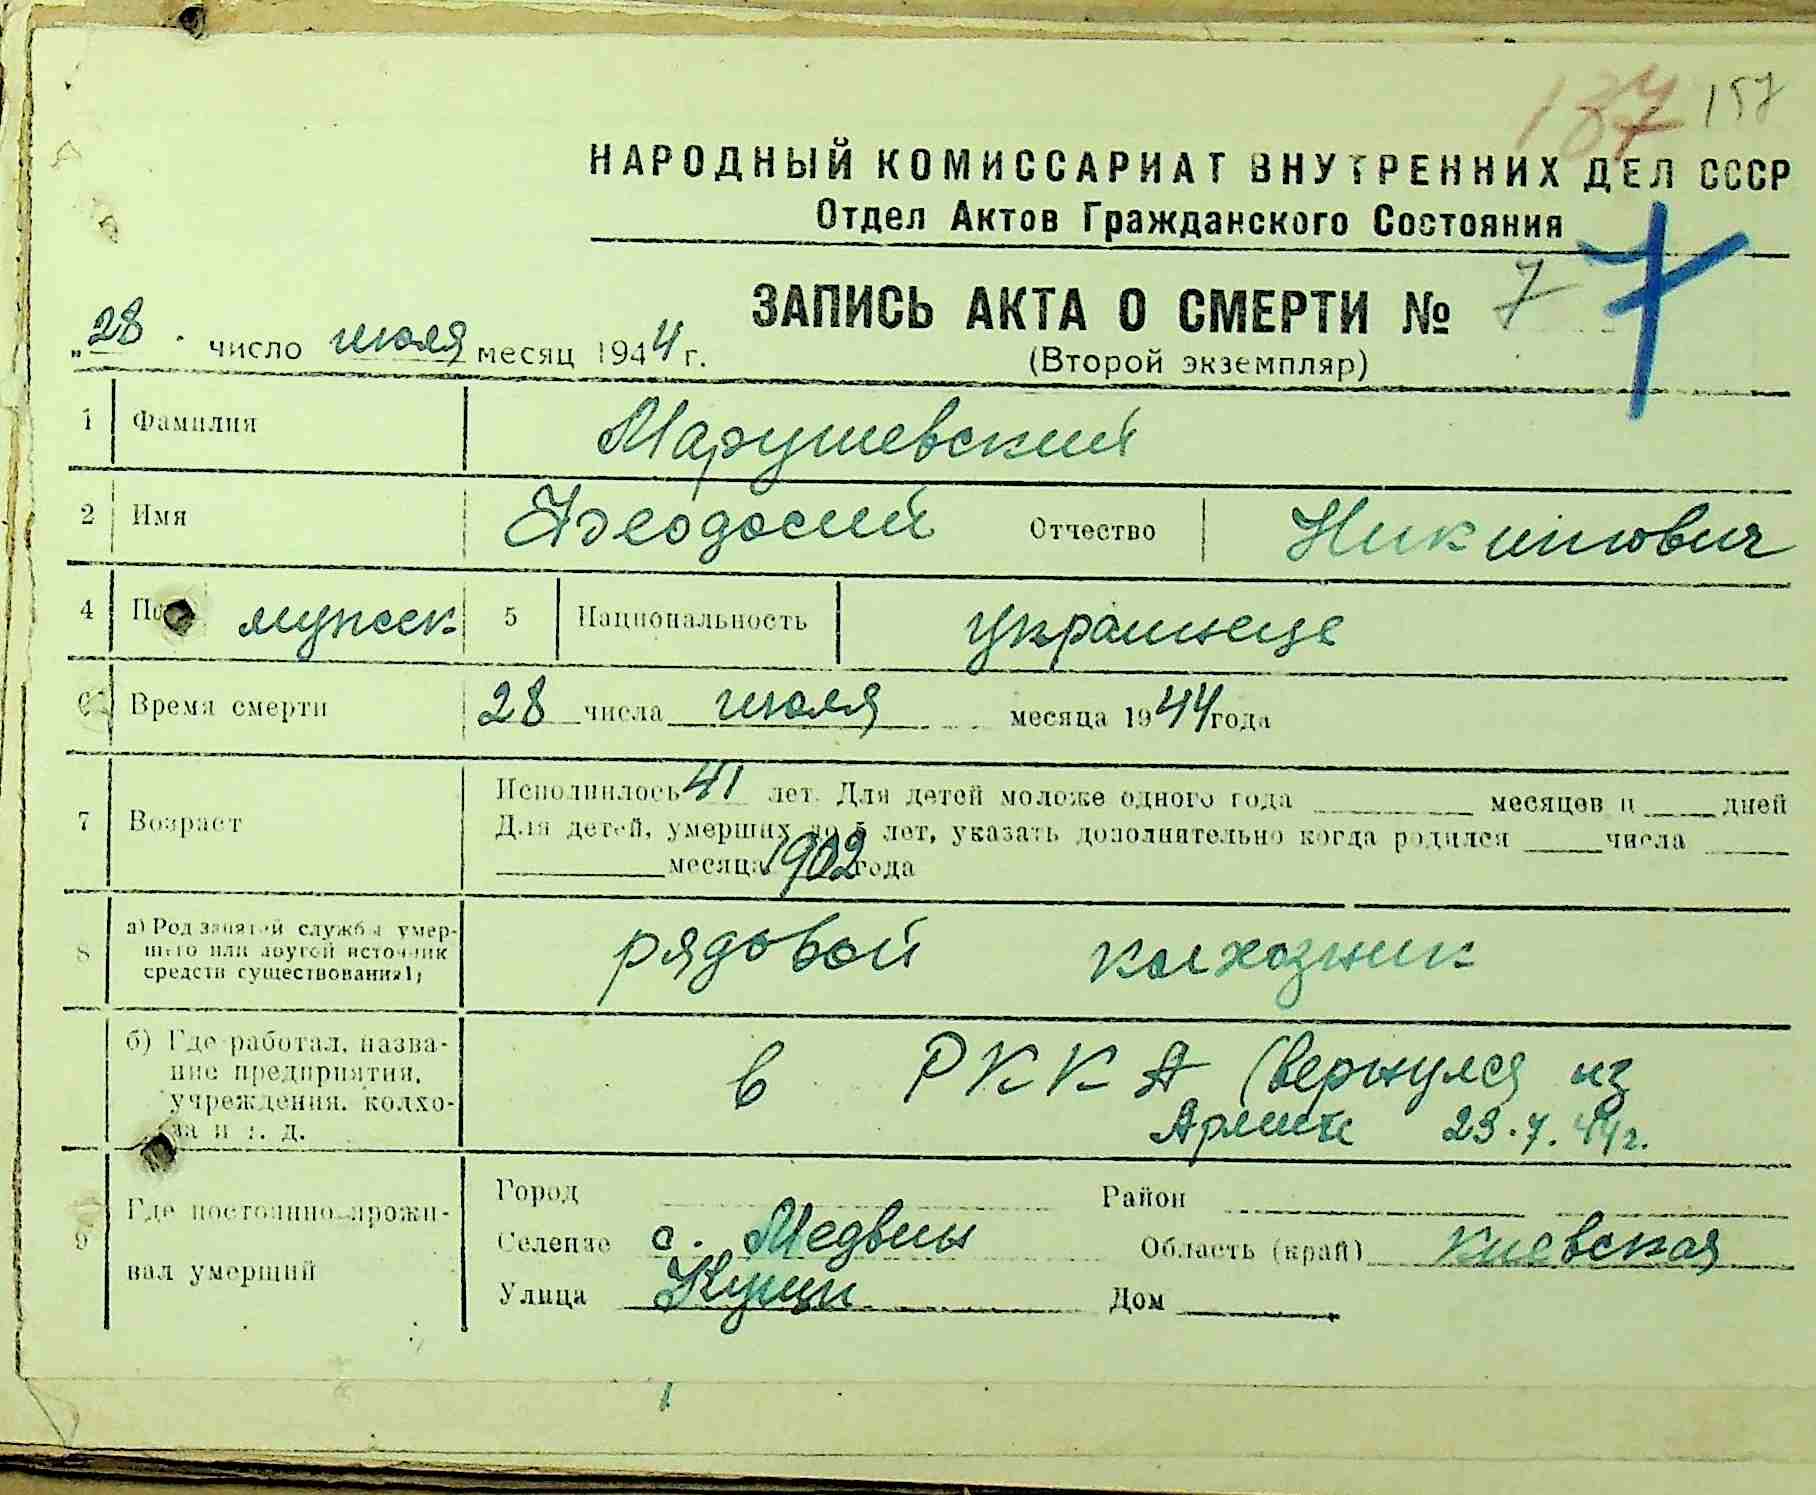 157
НАРОДНЫЙ КОМИССАРИАТ ВНУТРЕННИХ ДЕЛ СССР
Отдел Актов Гражданского Состояния
ЗАПИСЬ АКТА О СМЕРТИ № 7 7
"28 число июля месяц 1944 г.
(Второй экземпляр)
1 Фамилия Марушевский
2 Имя Феодосий Отчество Никитович
4 мужск 5 Национальность украинец
Время смерти 28 числа июля месяца 1944 года
7 Возраст Исполнилось 41 лет. Для детей моложе одного года месяцев и дней
Для детей, умерших до 5 лет, указать дополнительно когда родился числа
месяца 1902 года
8 а) Род занятий службы умер-
шего или другой источник
средств существования 1)
рядовой колхозник
б) Где работал, назва-
ние предприятия,
учреждения, колхо-
за и т. д.
в РККА (вернулся из
Армии 23.7.44г.
9 Где постоянно прожи-
вал умерший
Город Район
Селение с. Медвин Область (край) Киевская
Улица Кущи Дом